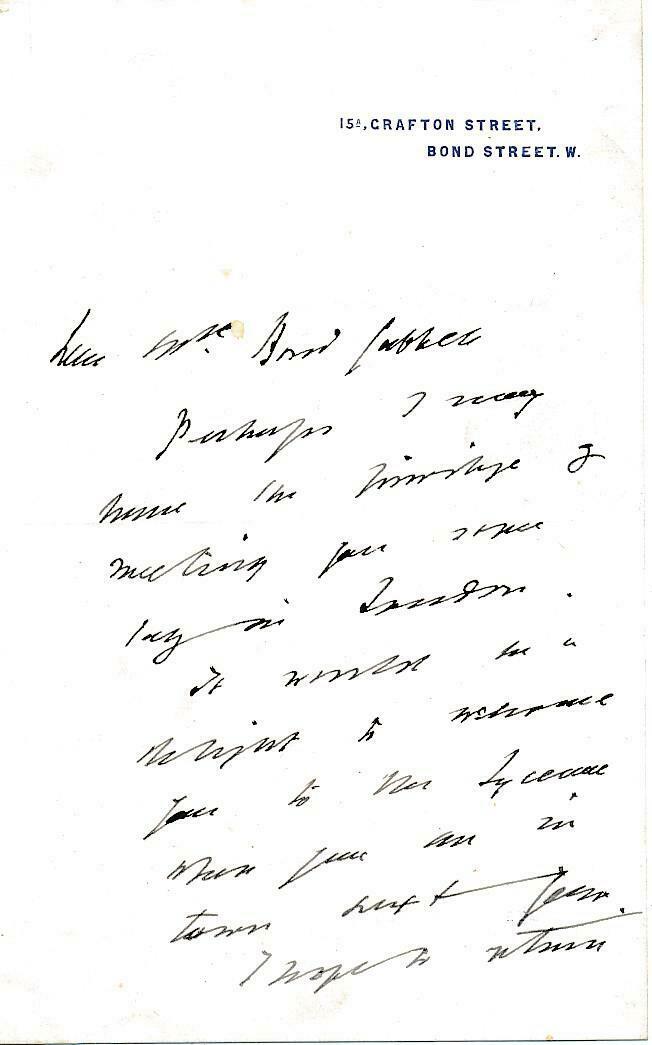 15A, GRAFTON STREET,
BOND STREET. W.
Dear Mr. Bond Cabbell
Perhaps I may
have the privilege of
meeting you some
day in London.
It would be a
delight to welcome
you to the Lyceum
when you are in
town next year.
I hope to return